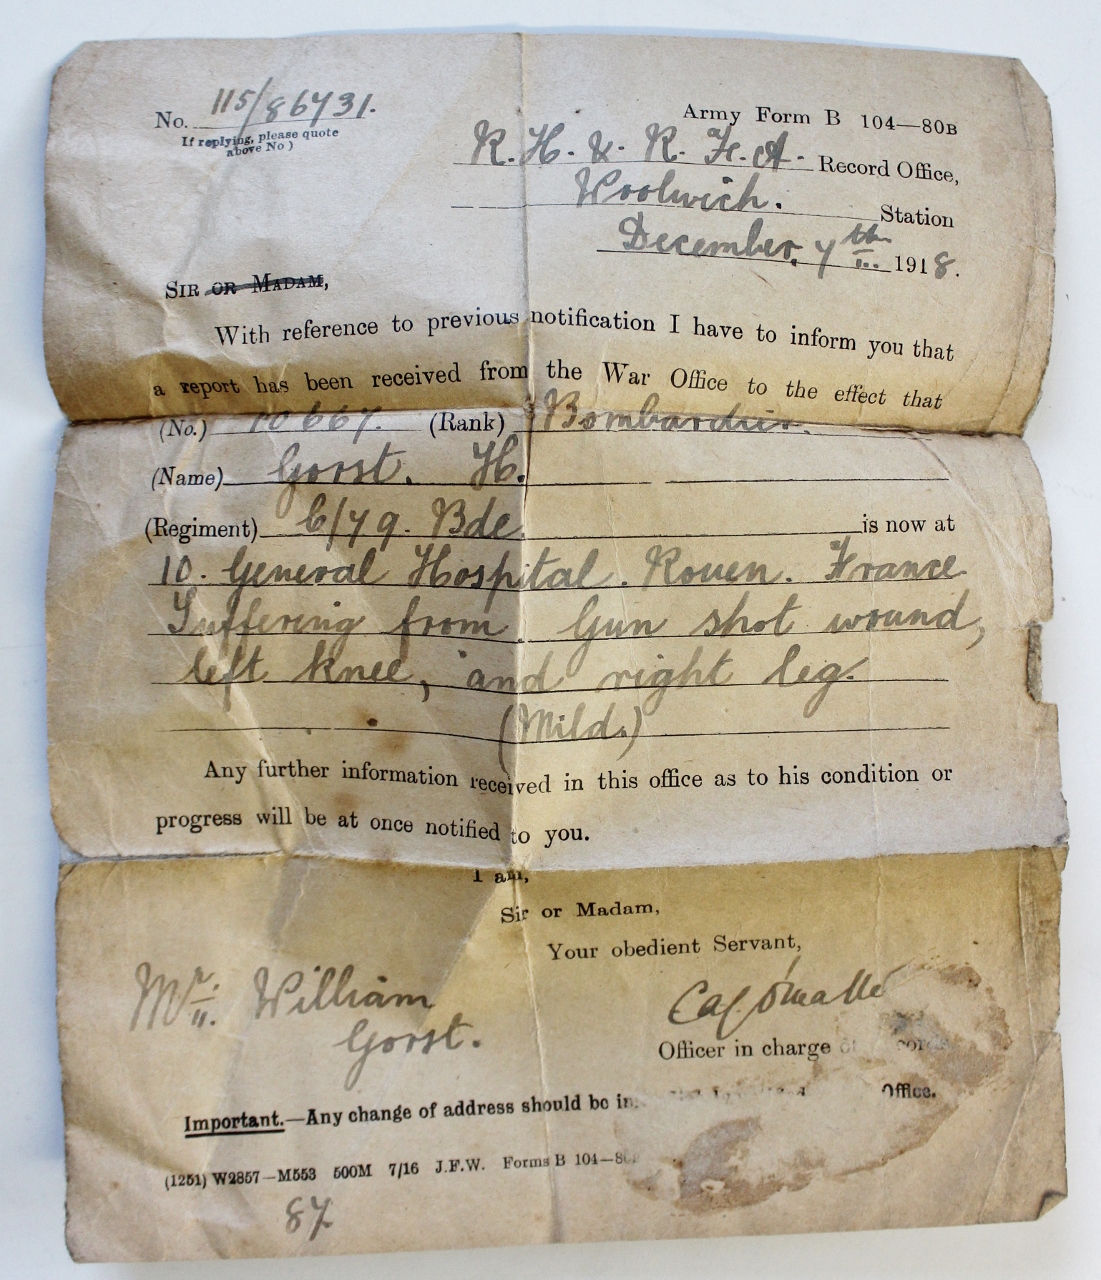 No. 115/86731.
If replying, please quote
above No )
Army Form B 104—80B
R. H. & R. F. A. Record Office,
Woolwich. Station
December, 7th 1918.
SIR OR MADAM,
With reference to previous notification I have to inform you that
a report has been received from the War Office to the effect that
(No.) 70667. (Rank) Bombardier.
(Name) Gorst. H.
(Regiment) C/79. Bde. is now at
10. General Hospital. Rouen. France
Suffering from. Gun shot wound,
left knee, and right leg.
(Mild.)
Any further information received in this office as to his condition or
progress will be at once notified to you.
I am,
Sir or Madam,
Your obedient Servant,
Mr. William
Gorst.
Officer in charge
Important.—Any change of address should be Office.
(1251) W2857—M553 500M 7/16 J.F.W. Forms B 104—80
87